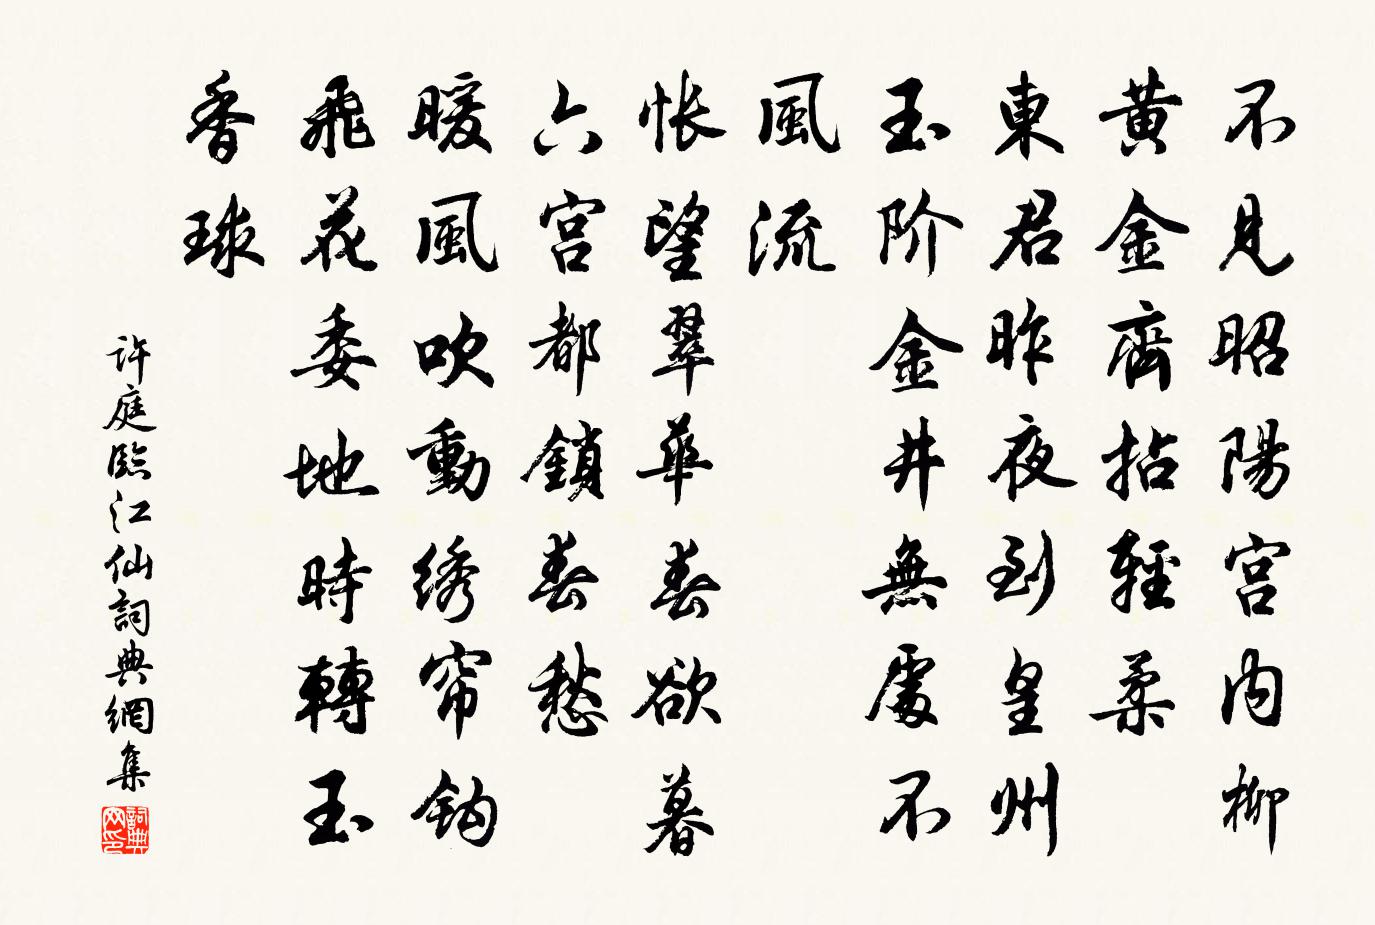 不見昭陽宫内柳
黄金齊拈輕柔
東君昨夜到皇州
玉阶金井無處不
風流
怅望翠華春欲暮
六宫都鎖春愁
暖風吹動绣帘钩
飛花委地時轉玉
香球
许庭臨江仙詞典網集
詞典网印